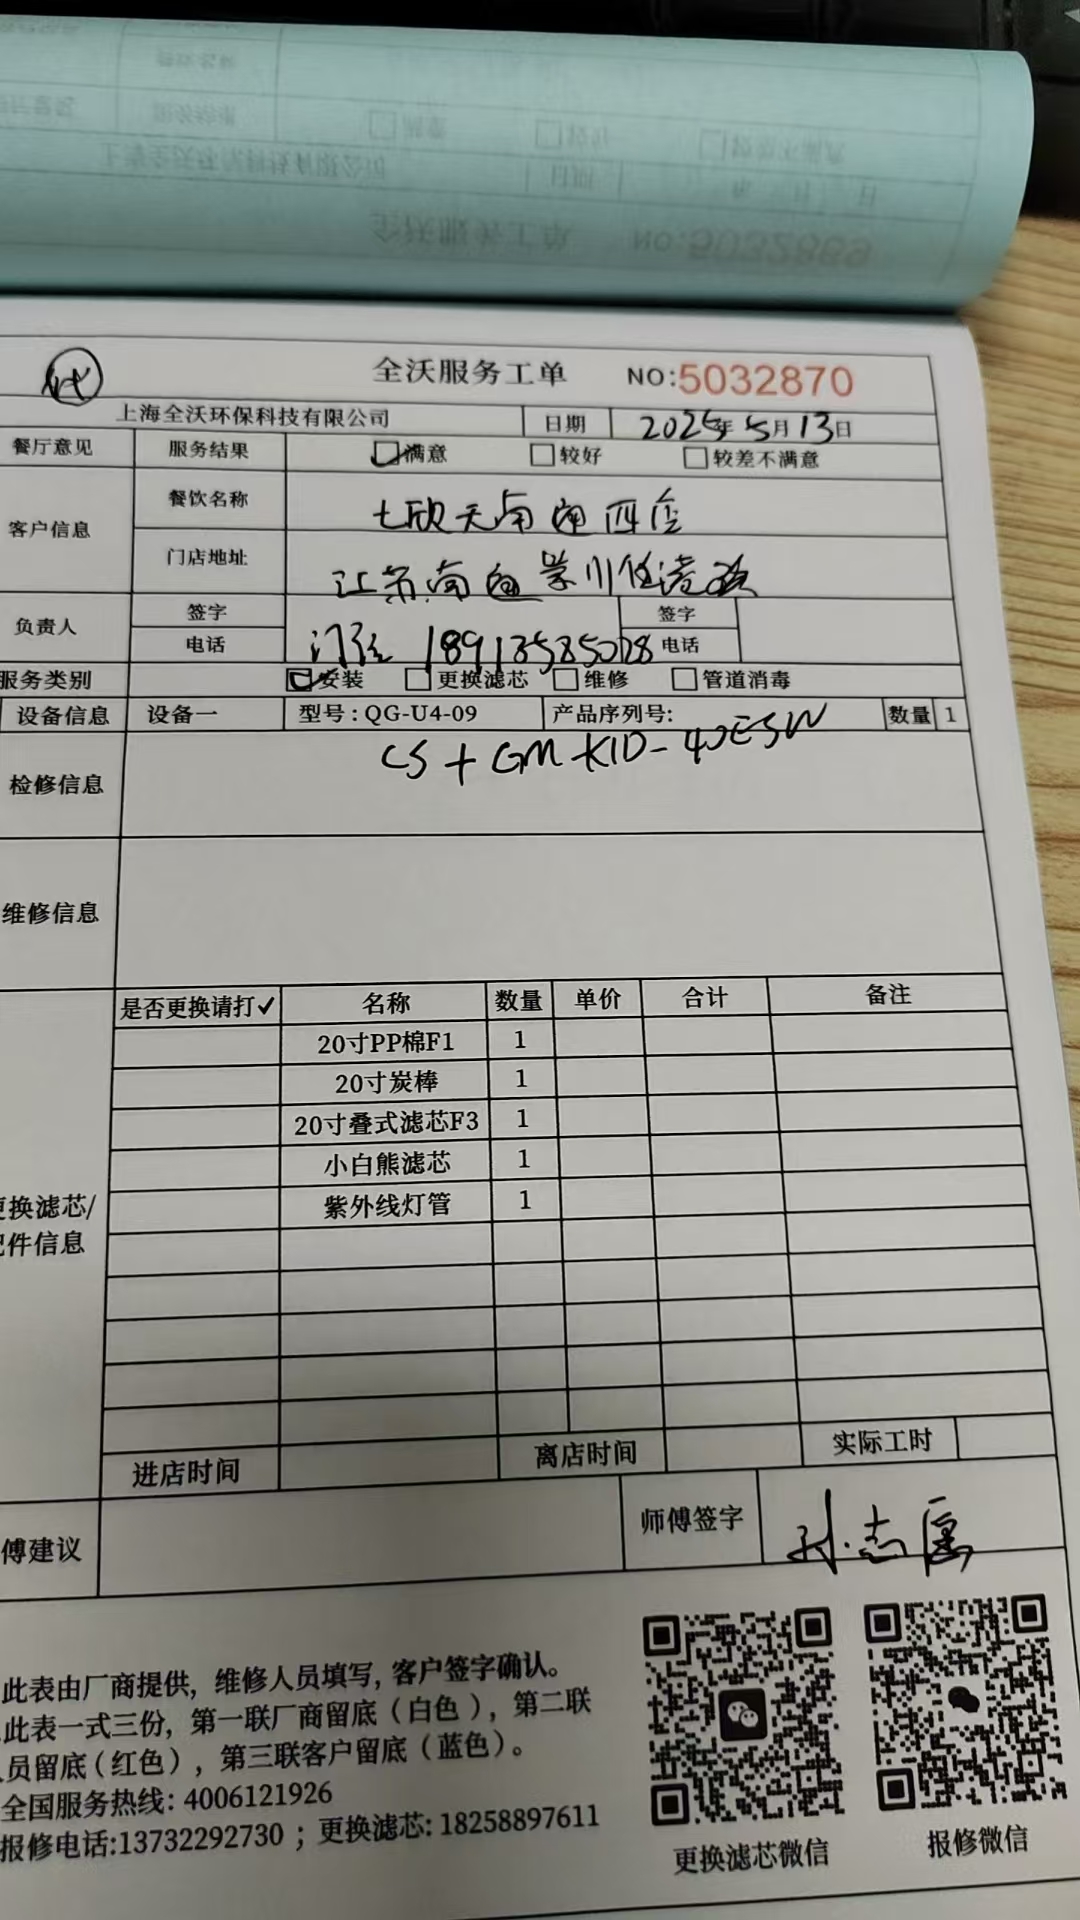 代
全沃服务工单 NO:5032870
上海全沃环保科技有限公司 日期 2025年5月13日
餐厅意见 服务结果 满意 较好 较差不满意
客户信息 餐饮名称 七欣天南通四店
门店地址 江苏南通 川 港
负责人 签字 签字
电话 18913585028 电话
服务类别 安装 更换滤芯 维修 管道消毒
设备信息 设备一 型号:QG-U4-09 产品序列号: 数量 1
CS + GM KID-40ESW
检修信息
维修信息
是否更换请打✓ 名称 数量 单价 合计 备注
20寸PP棉F1 1
20寸炭棒 1
20寸叠式滤芯F3 1
小白熊滤芯 1
紫外线灯管 1
更换滤芯/
配件信息
进店时间 离店时间 实际工时
傅建议 师傅签字 孙志
此表由厂商提供,维修人员填写,客户签字确认。
此表一式三份,第一联厂商留底(白色),第二联
人员留底(红色),第三联客户留底(蓝色)。
全国服务热线: 4006121926
报修电话:13732292730 ; 更换滤芯: 18258897611
更换滤芯微信 报修微信